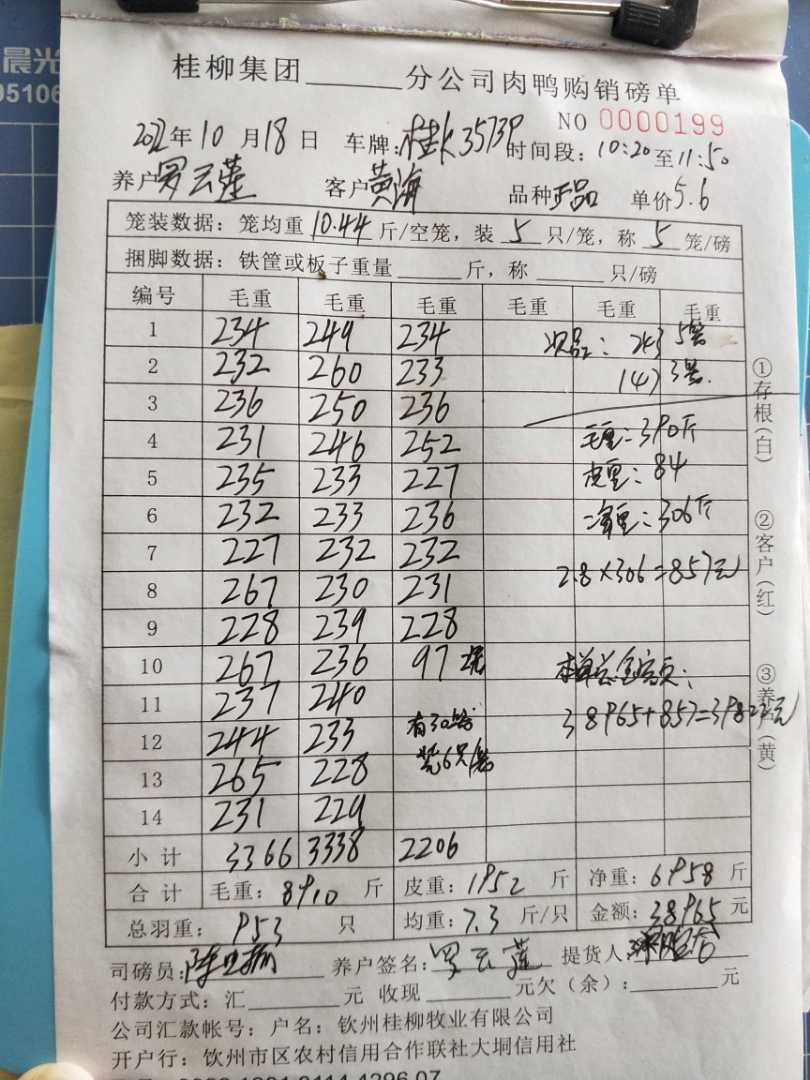 晨光
桂柳集团______分公司肉鸭购销磅单
NO 0000199
2022年10月18日 车牌:桂K3573P 时间段:10:20至11:50
养户罗云莲 客户黄海 品种正品 单价5.6
笼装数据:笼均重10.44斤/空笼,装5只/笼,称5笼/磅
捆脚数据:铁筐或板子重量______斤,称______只/磅
编号 毛重 毛重 毛重 毛重 毛重 毛重
1 234 249 234 次品: 243 5笼
2 232 260 233 147 3笼
3 236 250 236
4 231 246 252 毛重:390斤
5 235 233 227 皮重:84
6 232 233 236 净重:306斤
7 227 232 232
8 267 230 231 2.8×306=857元
9 228 239 228
10 267 236 97 本单总金额:
11 237 240 38965+857=39822元
12 244 233 有30笼
13 265 228 装6只/笼
14 231 229
小计 3366 3338 2206
合计 毛重:8910斤 皮重:1952斤 净重:6958斤
总羽重:953只 均重:7.3斤/只 金额:38965元
司磅员: 养户签名:罗云莲 提货人:
付款方式:汇______元 收现______元欠(余):______元
公司汇款帐号:户名:钦州桂柳牧业有限公司
开户行:钦州市区农村信用合作联社大垌信用社
①存根(白) ②客户(红) ③养户(黄)